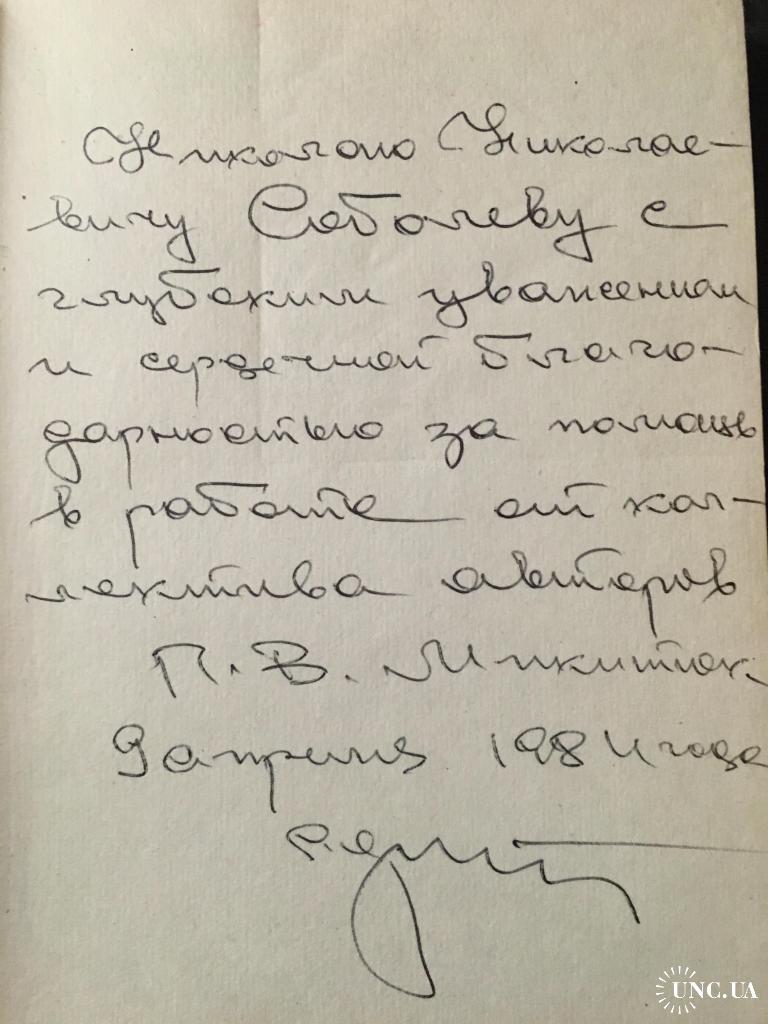 Николаю Николае-
вичу Соболеву с
глубоким уважением
и сердечной благо-
дарностью за помощь
в работе от кол-
лектива авторов
П. В. Микитюк
9 апреля 1984 года
UNC.UA